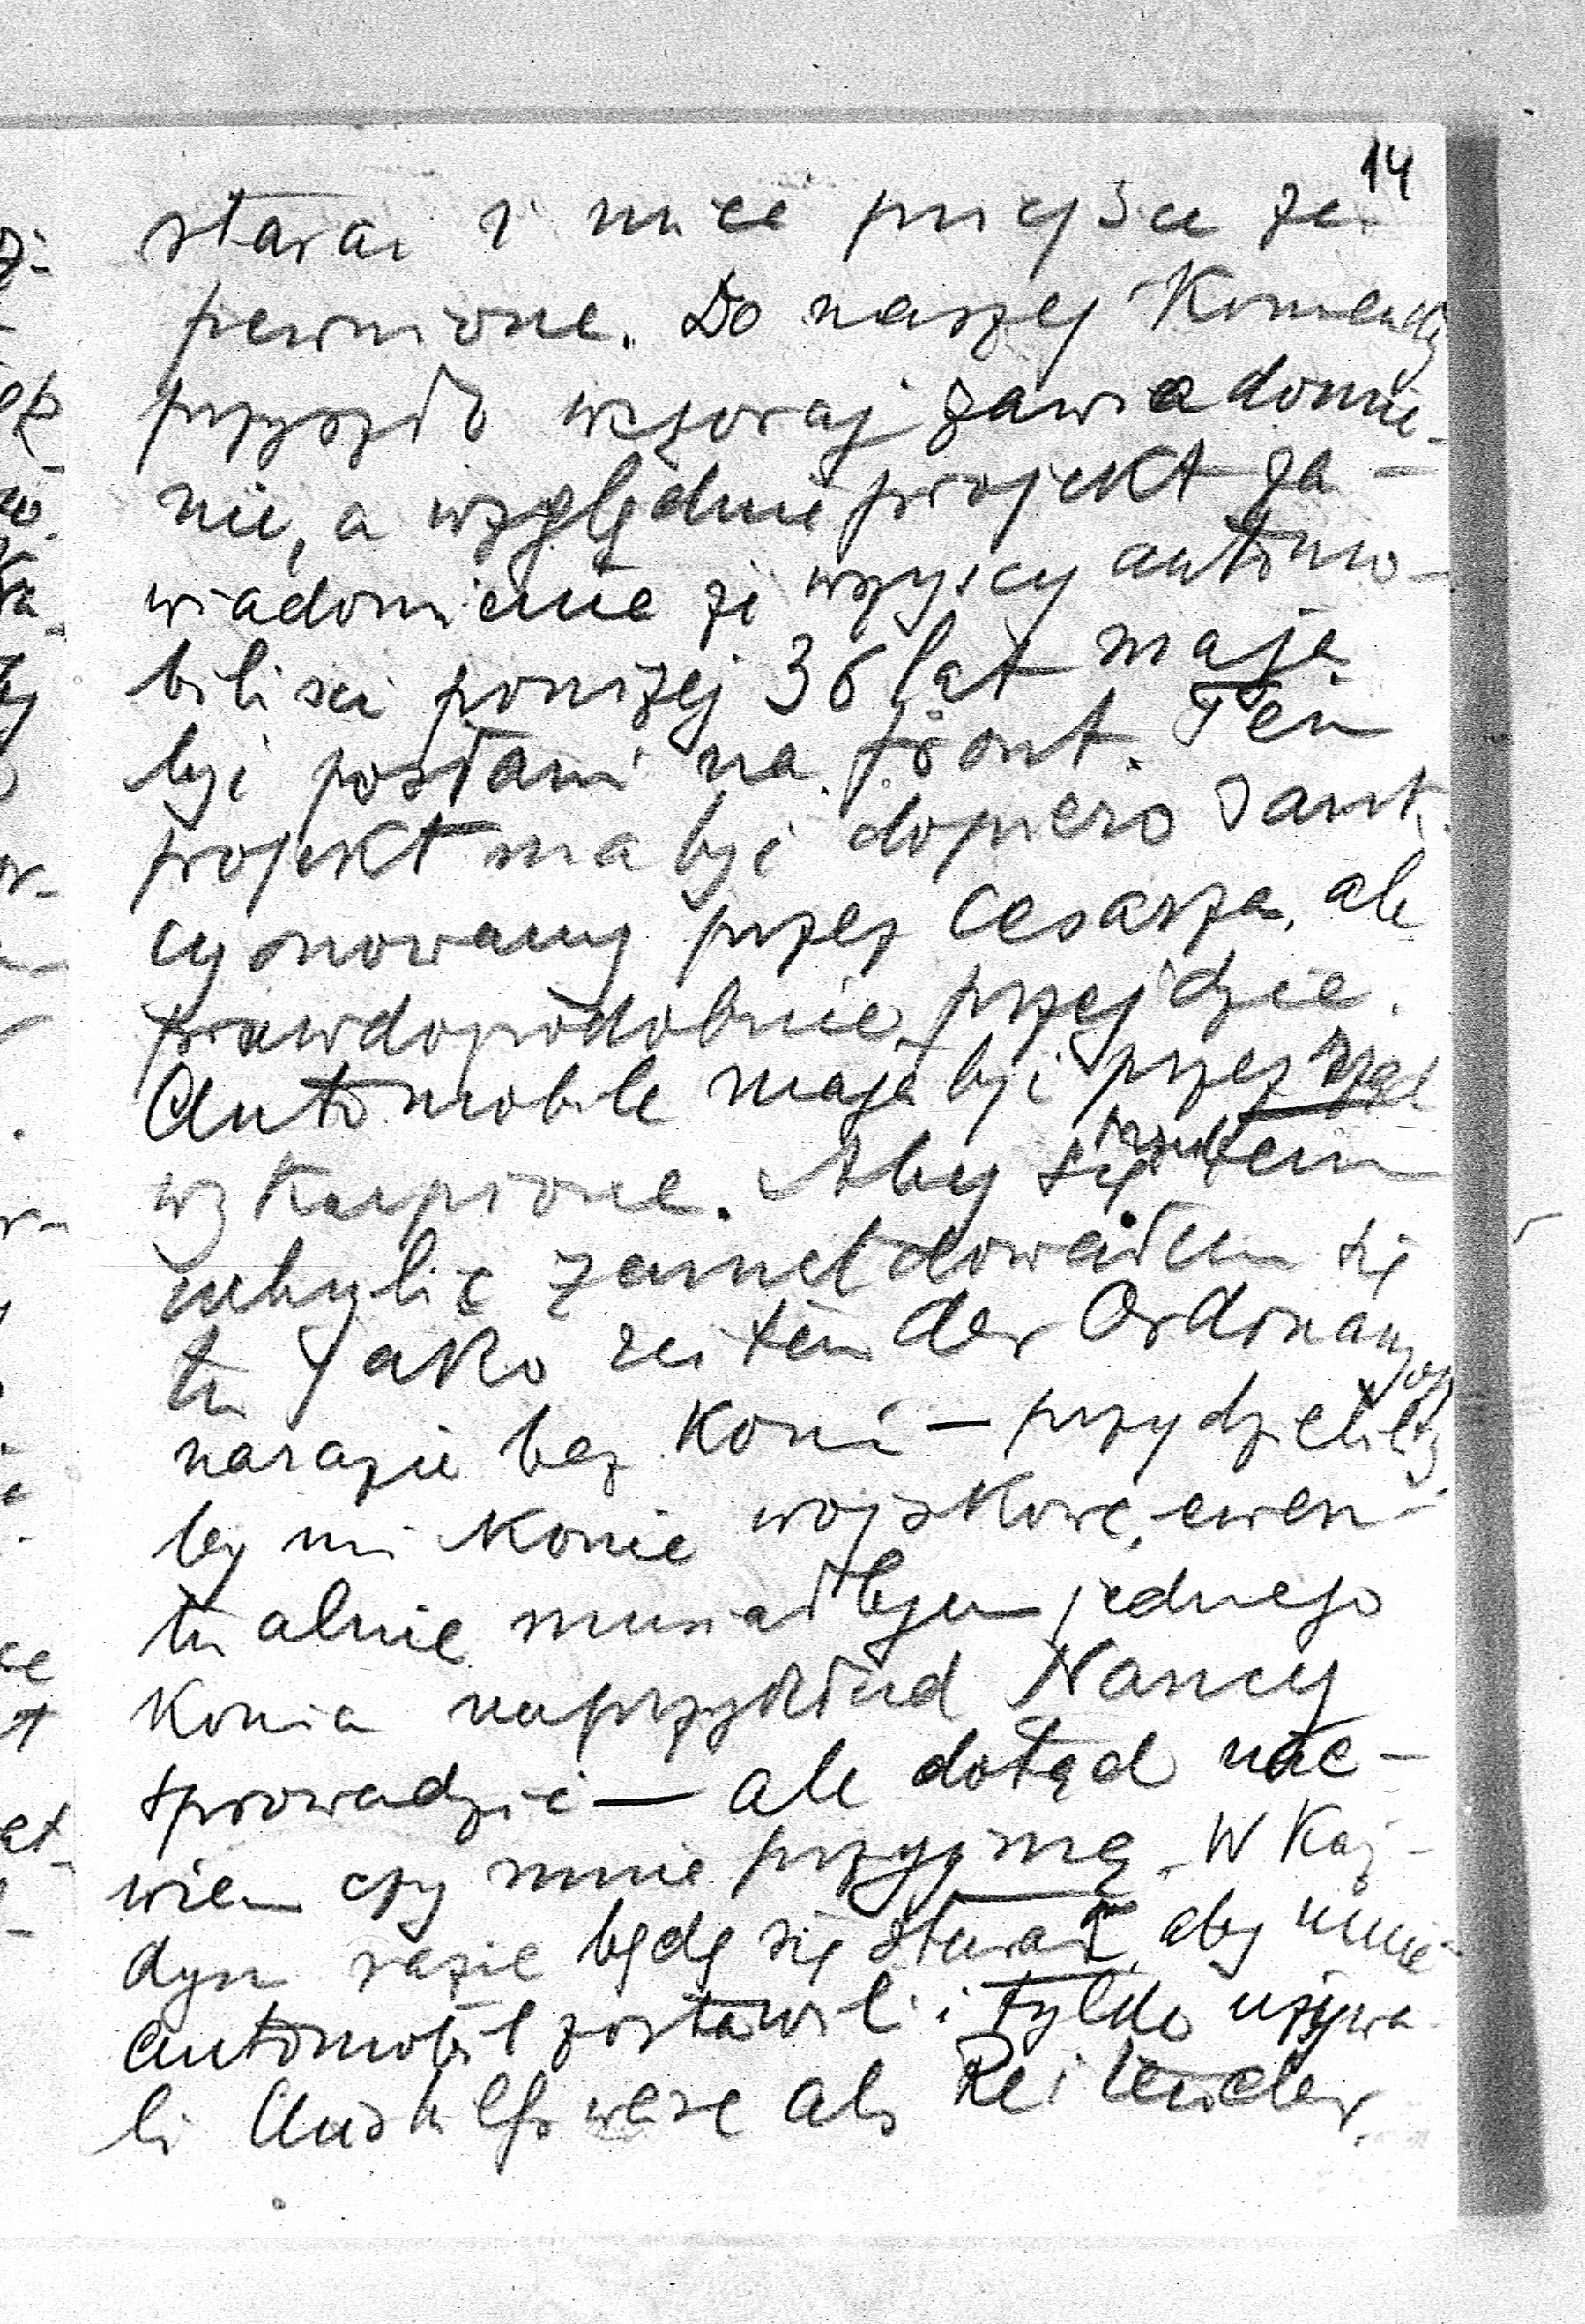 14
starać i mieć przejście za-
pewnione. Do naszej Komendy
przyszło wczoraj zawiadomie-
nie, a względnie projekt za-
wiadomienie że wszyscy automo-
biliści poniżej 36 lat mają
być posłani na front. Ten
projekt ma być dopiero sank-
cyonowany przez cesarza, ale
prawdopodobnie przejdzie.
Automobile mają być przez rząd
wykupione. Aby się przed tem
uchylić zameldowałem się
tu jako reitender Ordinanz
narazie bez koni — przydzielili
by mi konie wojskowe, ewen-
tualnie musiałbym jednego
konia naprzykład Nancy
sprowadzić — ale dotąd nie-
wiem czy mnie przyjmą. W każ-
dym razie będę się starał, aby mnie
automobil zostawili i tylko używa-
li Aushilfsweise als Reitender